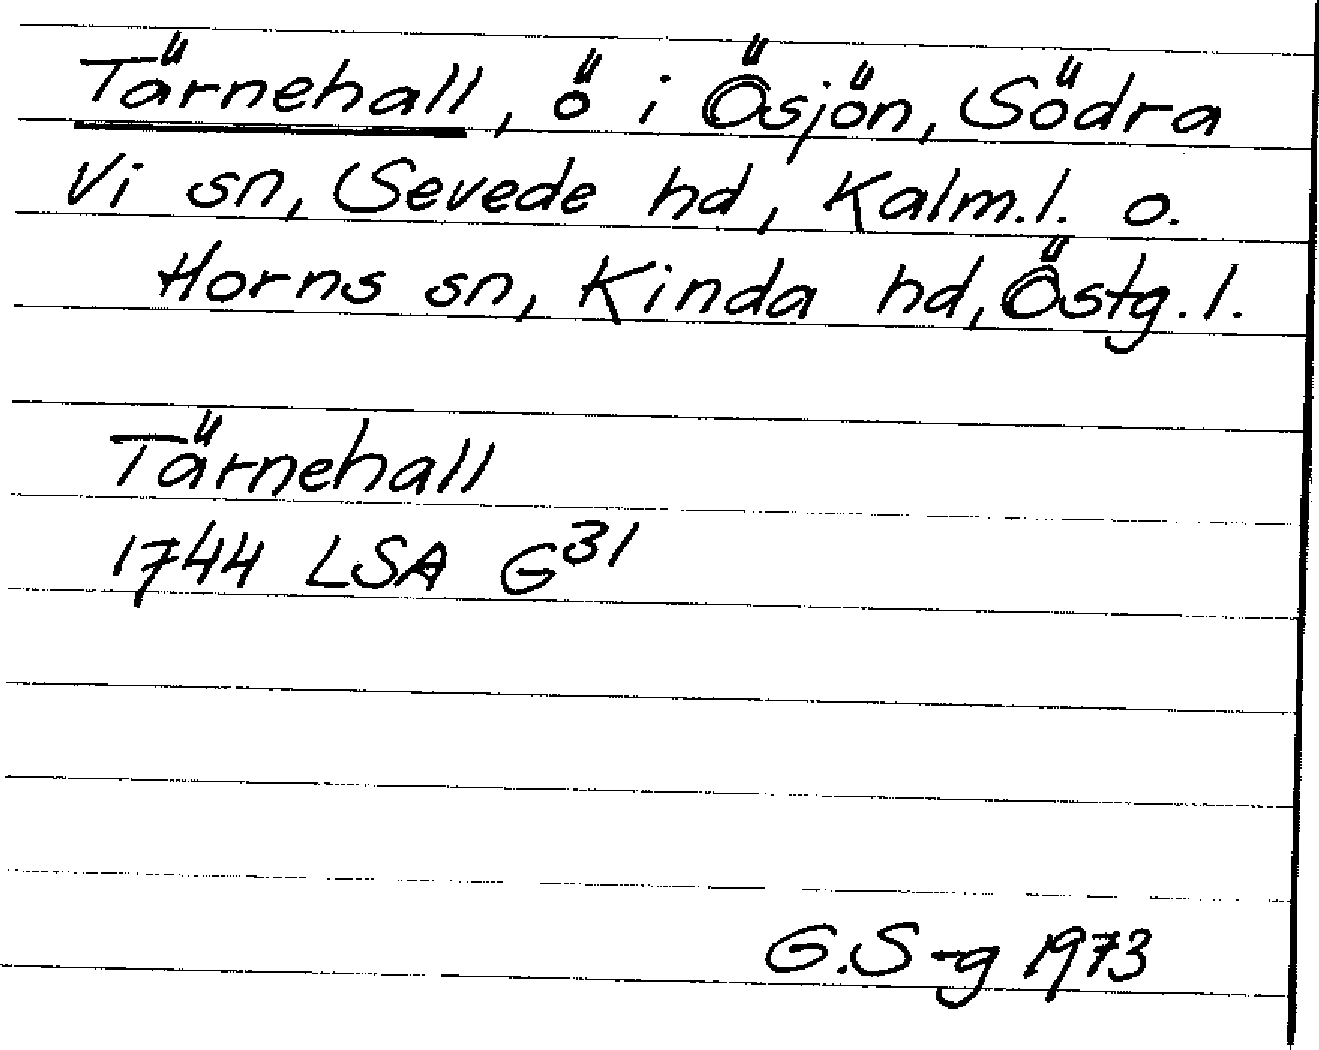 Tärnehall, ö i Ösjön, Södra
Vi sn, Sevede hd, Kalm.l. o.
Horns sn, Kinda hd, Östg.l.
Tärnehall
1744 LSA G31
G.S-g 1973